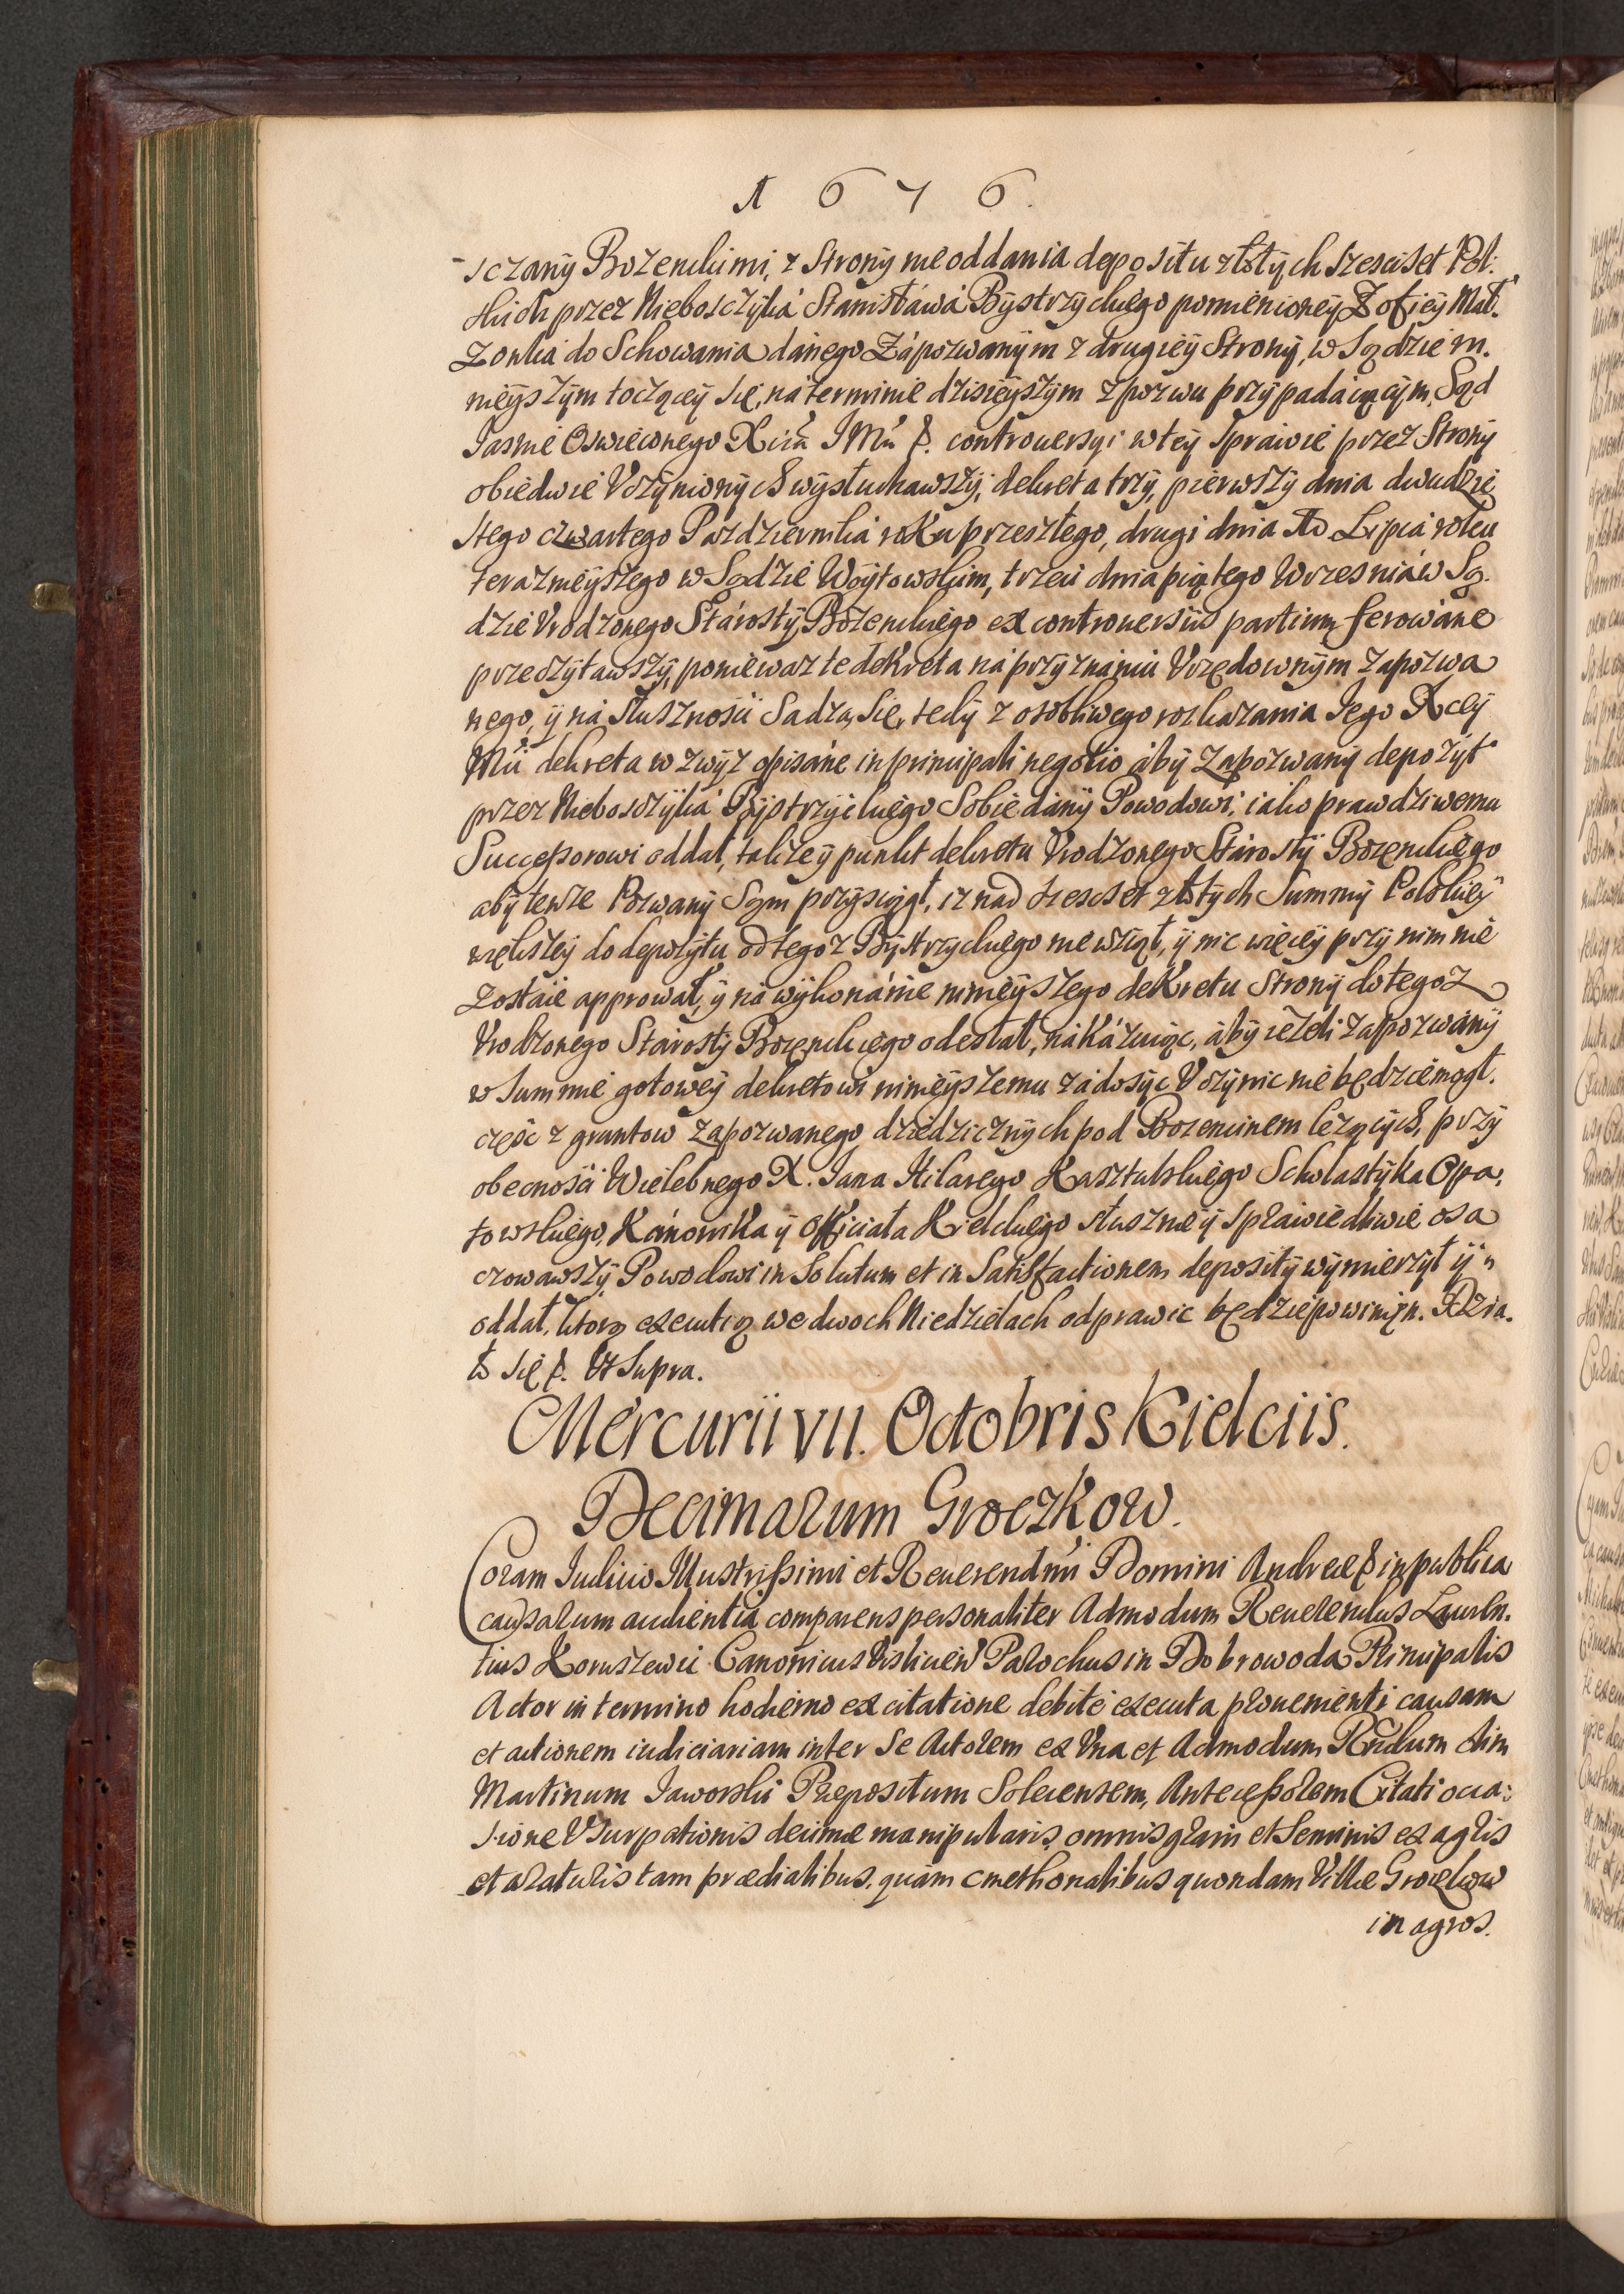 1676.
-sczany Bozenckimi, z Strony nieoddania depositu złotych sześciset Pol:
skich przez Nieboszczyka Stanisława Bystrzyckiego pomienioney Zofiey Mał.
zonka do Schowania danego Zápozwanym z drugiey Strony, w Sądzie ni.
nieyszym toczącey się, na terminie dzisieyszym z pozwu przypadaiącym, Sąd
Jasnie Oswieconego Xcia JMci &. controuersyi w tey sprawie przez Strony
obiedwie Vczynionych wysłuchawszy, dekreta trzy, pierwszy dnia dwudzie
stego czwartego Pazdziernika roKu przeszłego, drugi dnia Lipca roku
teraznieyszego w Sądzie Woytowskim, trzeci dnia piątego Wrzesnia w Są.
dzie Vrodzonego Starosty Bozenckiego ex controuersiis partium ferowane
przeczytawszy, poniewaz te deKreta na przyznaniu Vrzędownym zapozwa
nego, y na słusznosci Sadzą się, tedy z osobliwego roskazania Jego Xcey
Mci dekreta w zwyz opisane in principali negotio aby Zapozwany depozyt
przez Nieboszczyka Bystrzyckiego Sobie dany Powodowi, iako prawdziwemu
Successorowi oddał, takze y punkt dekretu Vrodzonego Starosty Bozenckiego
aby tenze Pozwany Sąm przysiągł, iz nad szescset złotych Summy Polskiey
większey do depozytu od tegoz Bystrzyckiego nie wziął, y nic więcey przy nim nie
zostaie apprował, y na wykonanie ninieyszego deKretu Strony do tegoz
Vrodzonego Starosty Bozenckiego odesłał, naKázuiąc, aby iezeli zapozwany
w Summie gotowey dekretowi ninieyszemu zadosyc Vczynic nie będzie mogł.
częsc z gruntow zapozwanego dziedzicznych pod Bozencinem lezących, przy
obecnosci Wielebnego X. Jana Hilarego Kasztulskiego Scholastyka Opa,
towskiego, Kánonika y Officiała Kieleckiego słusznie y Sprawiedliwie osza
czowawszy Powodowi in Solutum et in Satisfactionem deposity wymierzył y
oddał. ktorą executią we dwoch Niedzielach odprawic będzie powinien. Dzia.
ło się &. Vt Supra.
Mercurii VII. Octobris Kielciis.
Decimarum Groczkow.
Coram Judicio Illustrissimi et Reuerendmi Domini Andreæ & in publica
causarum audientia comparens personaliter Admodum Reuerendus Lauren.
tius Koruszewic Canonicus Visliciens Parochus in Dobrowoda Principalis
Actor in termino hodierno ex citatione debite executa prouenienti causam
et actionem iudiciariam inter Se Actorem ex Vna et Admodum Rndum olim
Martinum Jaworski Præpositum Solecensem, Antecessorem Citati occa:
sione Vsurpationis decimæ manipularis, omnis grani et Seminis ex agris
et araturis tam prædialibus, quam cmethonalibus quondam Villæ Groczkow
in agros.